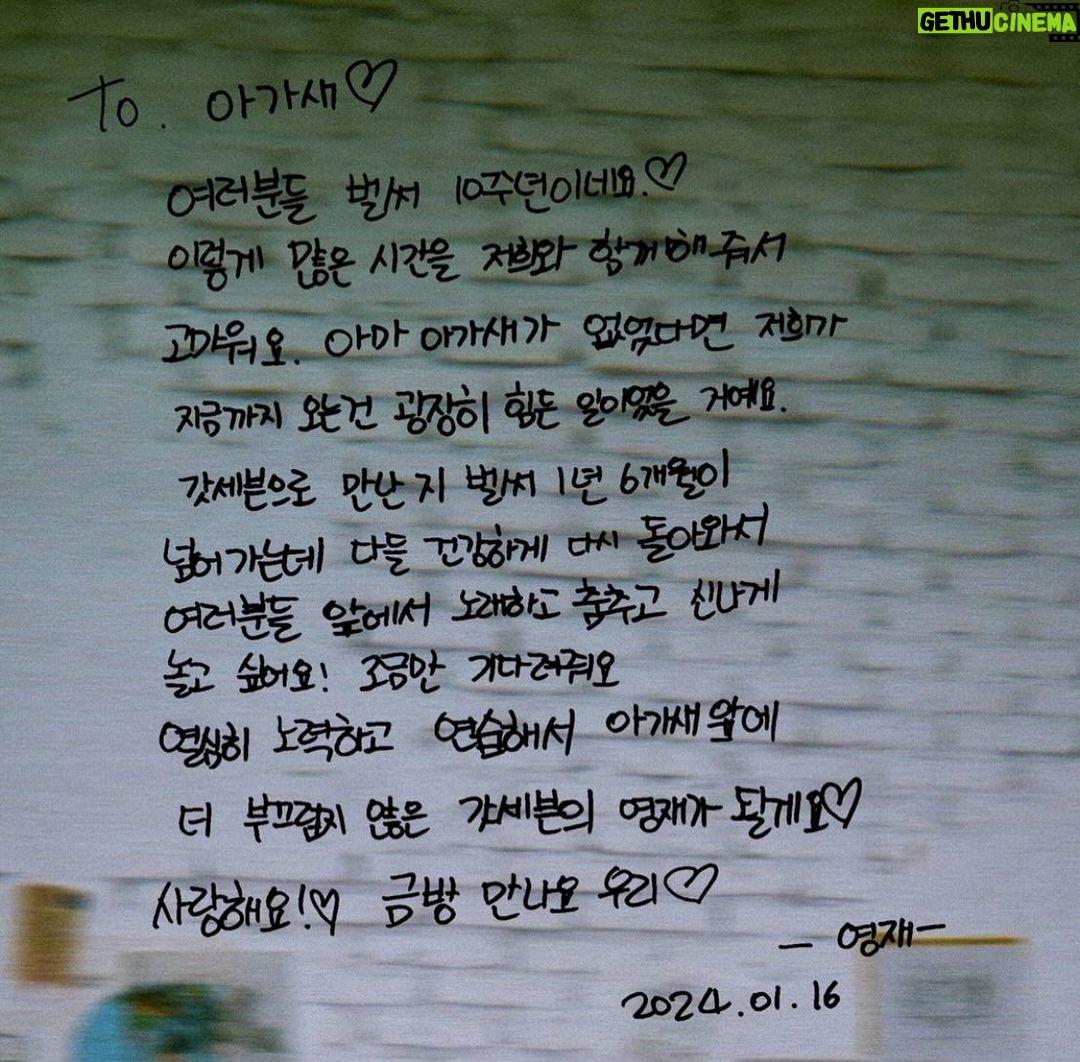 GETHUCINEMA
To. 아가새♡
여러분들 벌써 10주년이네요.♡
이렇게 많은 시간을 저희와 함께해줘서
고마워요. 아마 아가새가 없었다면 저희가
지금까지 오는건 굉장히 힘든 일이었을 거예요.
갓세븐으로 만난지 벌써 1년 6개월이
넘어가는데 다들 건강하게 다시 돌아와서
여러분들 앞에서 노래하고 춤추고 신나게
놀고 싶어요! 조금만 기다려줘요
열심히 노력하고 연습해서 아가새앞에
더 부끄럽지 않은 갓세븐의 영재가 될게요♡
사랑해요!♡ 금방 만나요 우리♡
- 영재 -
2024.01.16